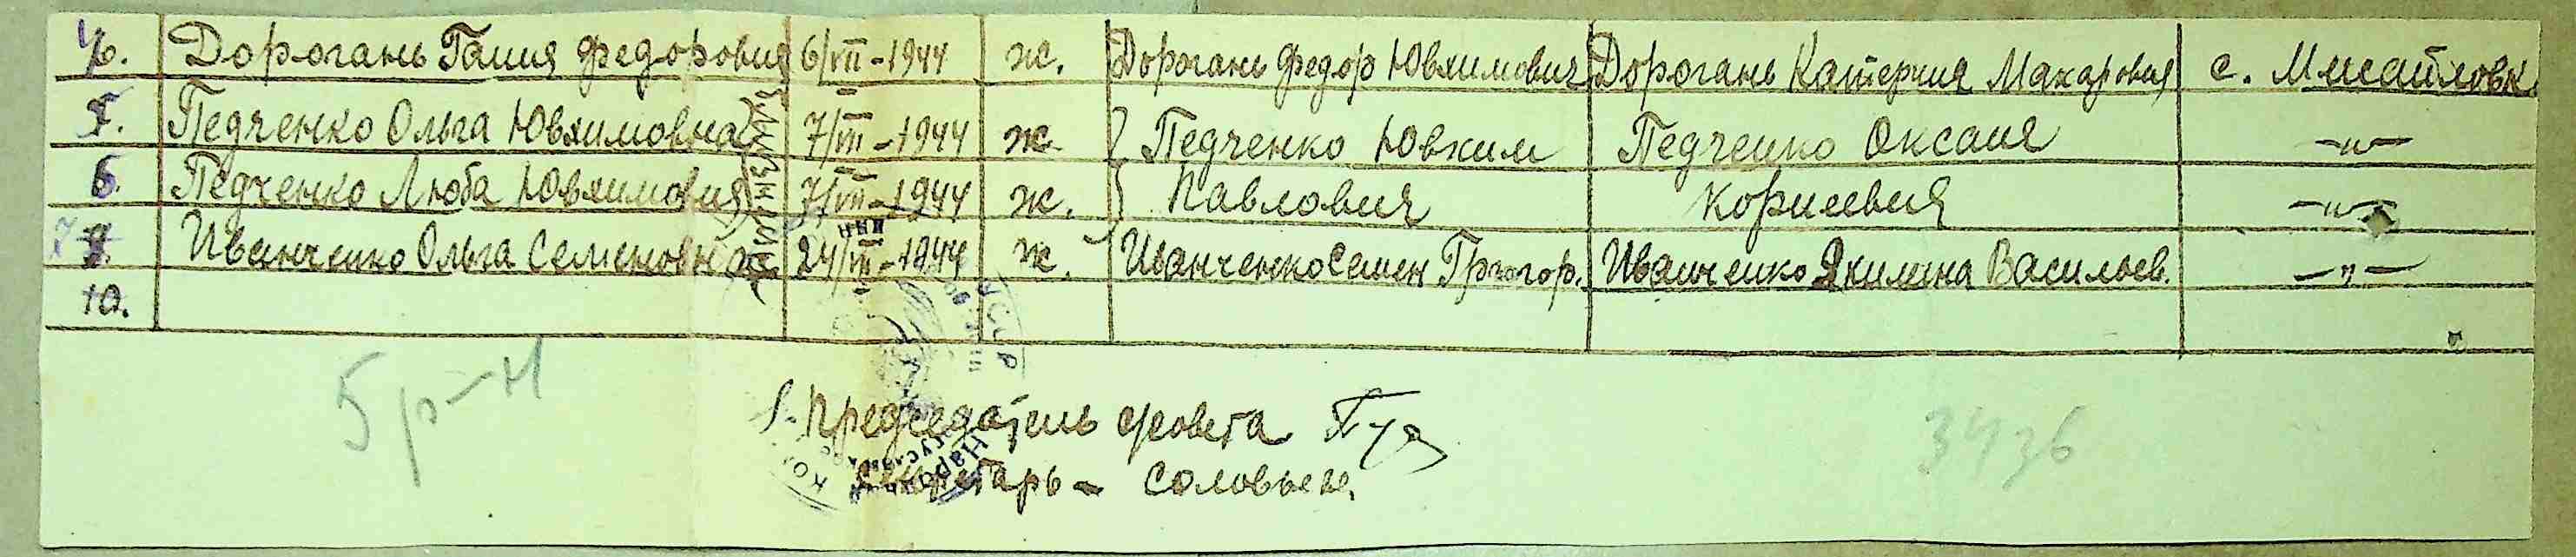 4. Дорогань Галия Федоровия 6/VII-1944 ж. Дорогань Федор Ювхимович Дорогань Катерина Макаровия с. Мисайловк.
5. Педченко Ольга Ювхимовна 7/VII-1944 ж. Педченко Ювхим Педченко Оксана -"-
близнята
6. Педченко Люба Ювхимовия 7/VII-1944 ж. Павлович Корнеевия -"-
7. Иванченко Ольга Семеновн 24/VII-1944 ж. Иванченко Семен Григор. Иванченко Якилина Васильев. -"-
10.
5 р-н
Председатель с/совета
3436
Секретарь -